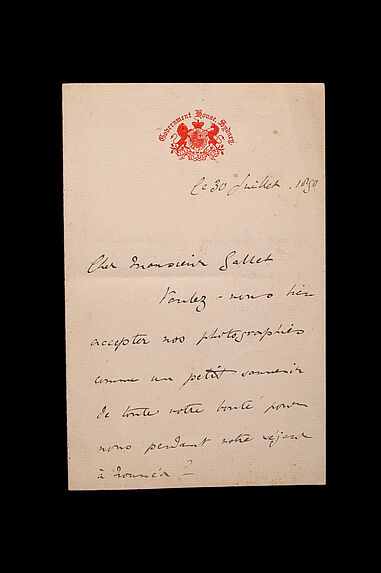 Government House, Sydney
le 30 Juillet. 1890
Cher Monsieur Gallet
Voulez-nous bien
accepter nos photographies
comme un petit souvenir
de toute votre bonté pour
nous pendant notre séjour
à Nouméa ?